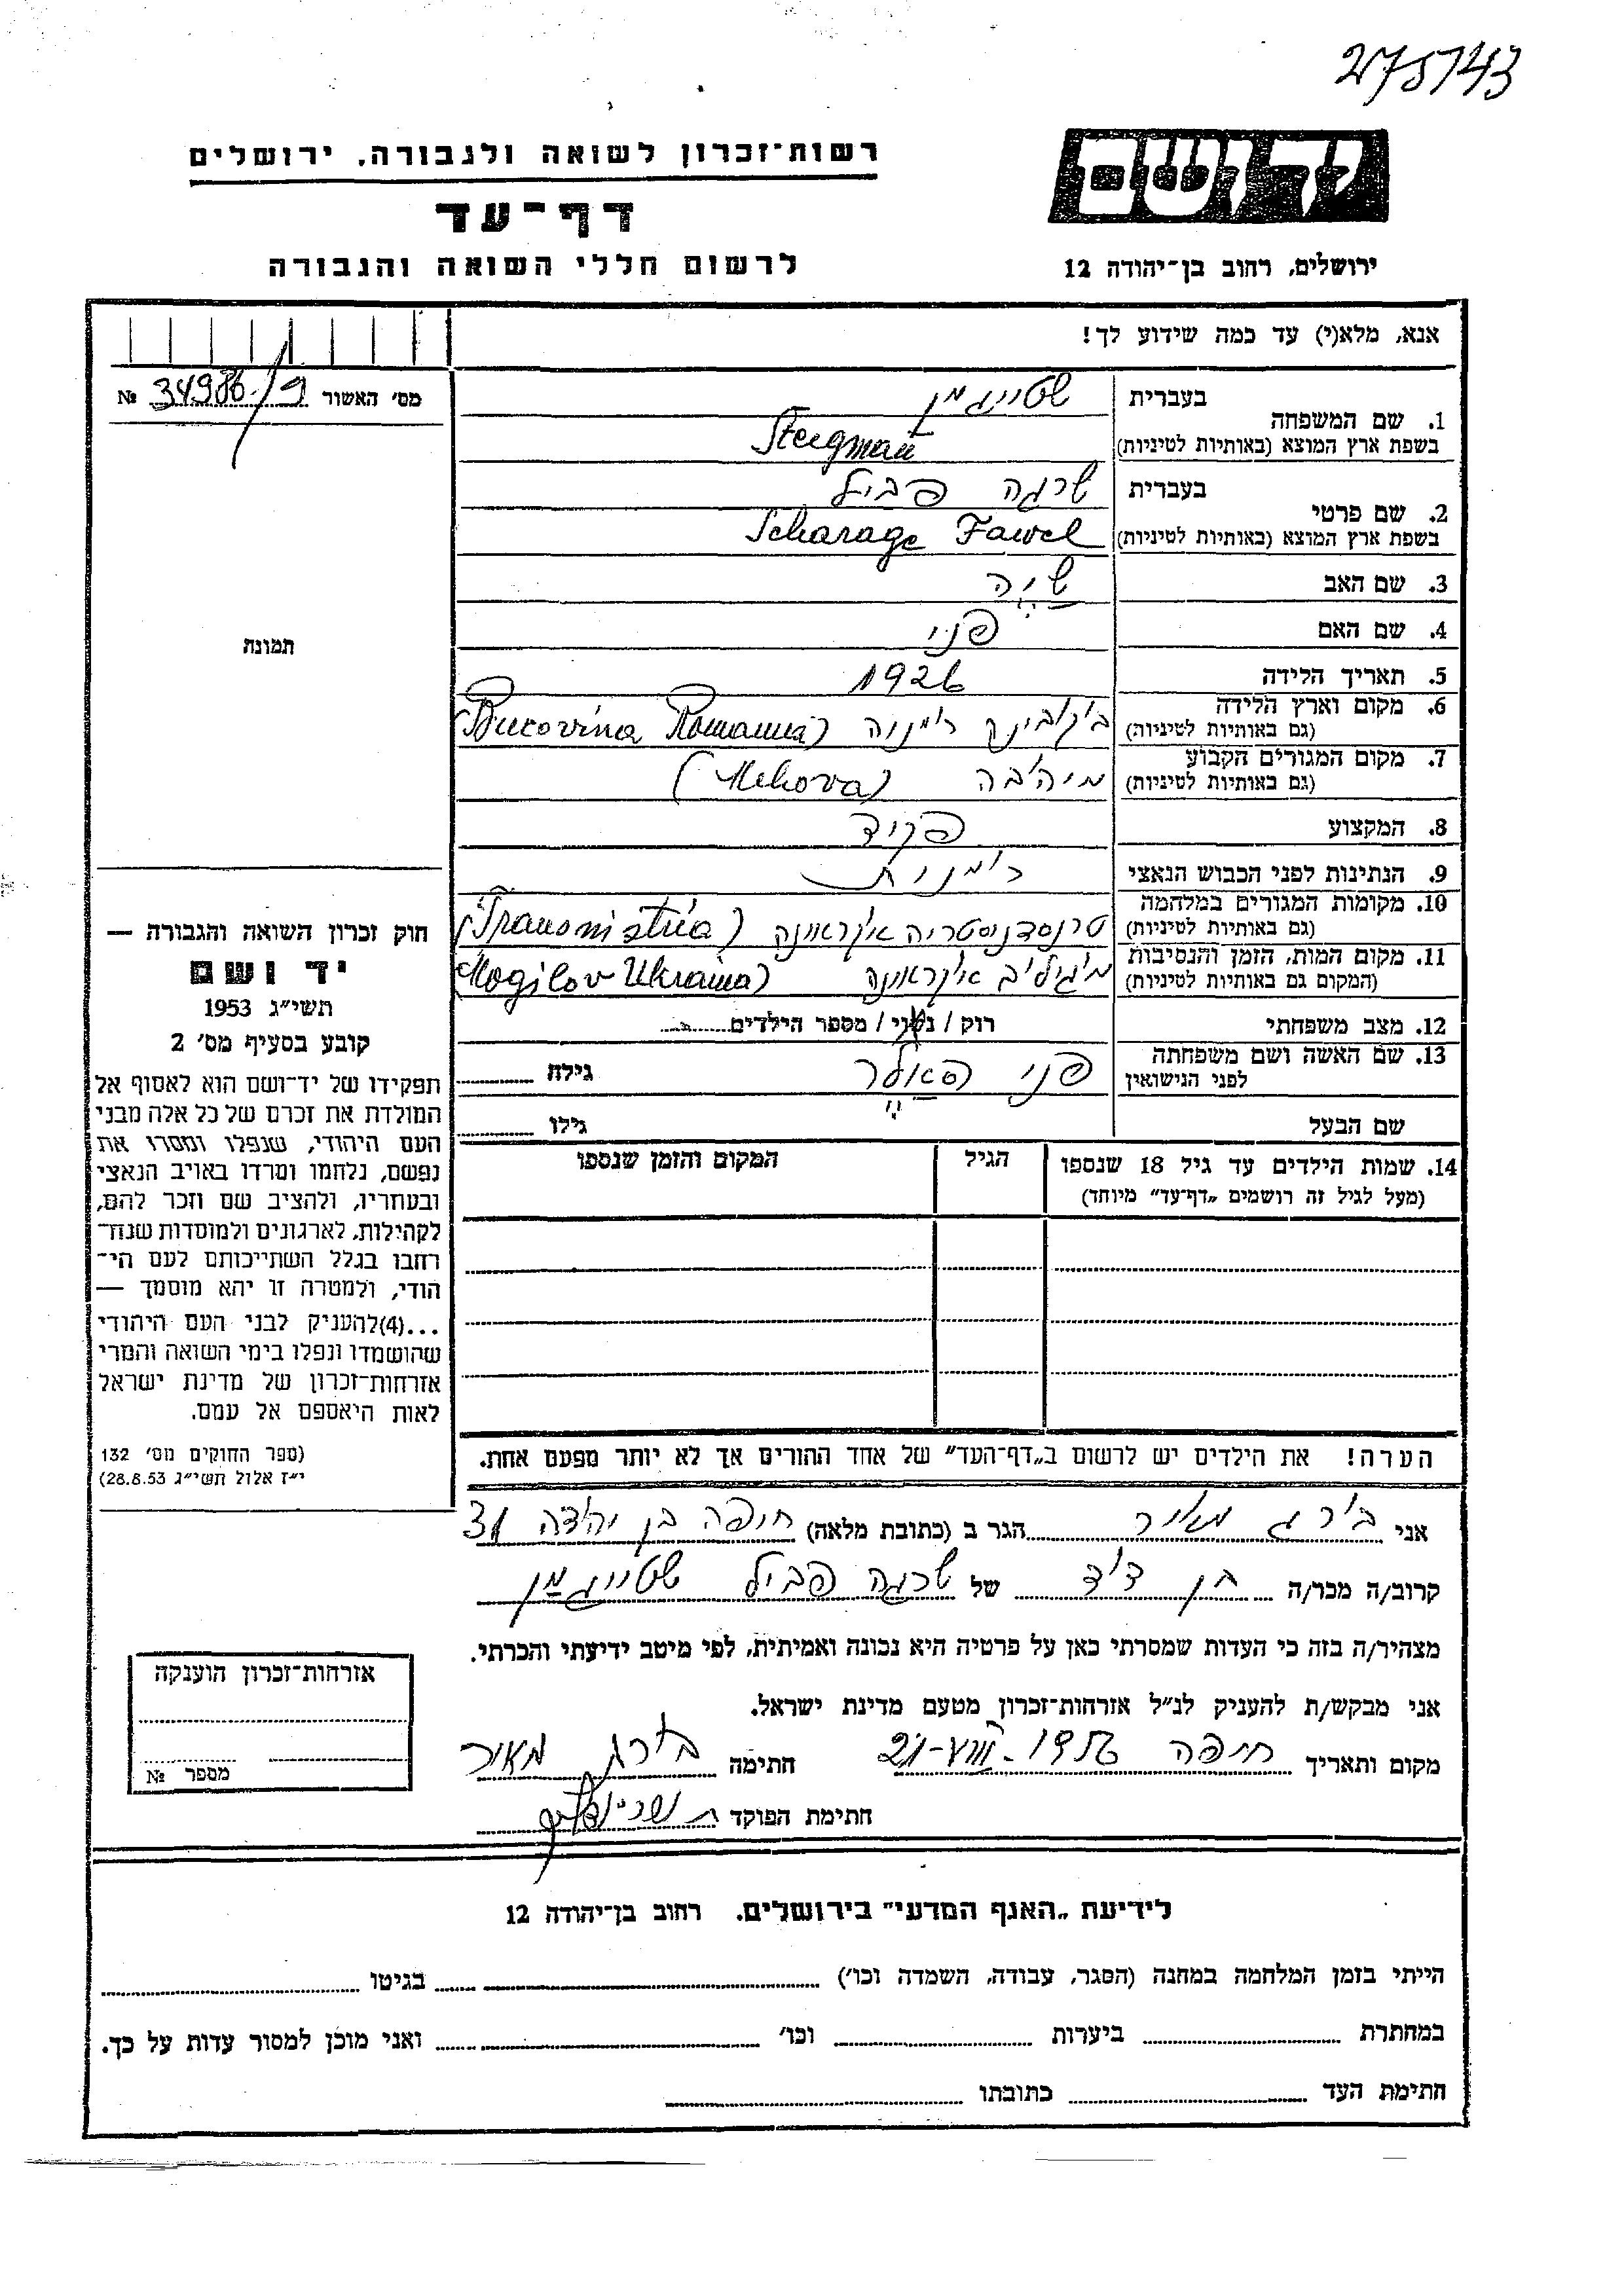 275143
יד ושם
רשות-זכרון לשואה ולגבורה, ירושלים
דף-עד
לרשום חללי השואה והגבורה
ירושלים, רחוב בן-יהודה 12
אנא, מלא(י) עד כמה שידוע לך!
מס׳ האשור 34986/9 №
1. שם המשפחה
בעברית שטייגמן
בשפת ארץ המוצא (באותיות לטיניות) Steigman
2. שם פרטי
בעברית שרגה פביל
בשפת ארץ המוצא (באותיות לטיניות) Scharage Fawel
3. שם האב שיה
4. שם האם פני
תמונה
5. תאריך הלידה 1926
6. מקום וארץ הלידה
(גם באותיות לטיניות) בוקובינה רומנוה (Bucovina Romania)
7. מקום המגורים הקבוע
(גם באותיות לטיניות) מיהובה (Mehova)
8. המקצוע פקיד
9. הנתינות לפני הכבוש הנאצי רומנית
10. מקומות המגורים במלחמה
(גם באותיות לטיניות) טרנסדנוסטריה אוקראינה (Transnistria)
11. מקום המות, הזמן והנסיבות
(המקום גם באותיות לטיניות) מוגוליב אוקראינה (Mogilov Ukraina)
12. מצב משפחתי רוק / נשוי / מספר הילדים
13. שם האשה ושם משפחתה
לפני הנישואין פני גילה
שם הבעל גילו
14. שמות הילדים עד גיל 18 שנספו
(מעל לגיל זה רושמים „דף-עד" מיוחד)
הגיל
המקום והזמן שנספו
חוק זכרון השואה והגבורה —
יד ושם
תשי״ג 1953
קובע בסעיף מס׳ 2
תפקידו של יד-ושם הוא לאסוף אל
המולדת את זכרם של כל אלה מבני
העם היהודי, שנפלו ומסרו את
נפשם, נלחמו ומרדו באויב הנאצי
ובעוזריו, ולהציב שם וזכר להם,
לקהילות, לארגונים ולמוסדות שנח־
רבו בגלל השתייכותם לעם הי־
הודי, ולמטרה זו יהא מוסמך —
...(4)להעניק לבני העם היהודי
שהושמדו ונפלו בימי השואה והמרי
אזרחות-זכרון של מדינת ישראל
לאות היאספם אל עמם.
(ספר החוקים מס׳ 132
י״ז אלול תשי״ג 28.8.53)
הערה! את הילדים יש לרשום ב„דף-העד" של אחד ההורים אך לא יותר מפעם אחת.
אני בורג מאיר הגר ב (כתובת מלאה) חיפה בן יהודה 31
קרוב/ה מכר/ה בן דוד של שרגה פביל שטייגמן
מצהיר/ה בזה כי העדות שמסרתי כאן על פרטיה היא נכונה ואמיתית, לפי מיטב ידיעתי והכרתי.
אני מבקש/ת להעניק לנ״ל אזרחות-זכרון מטעם מדינת ישראל.
מקום ותאריך חיפה חתימה בורג מאיר
חתימת הפוקד
אזרחות-זכרון הוענקה
מספר №
לידיעת „האגף המדעי" בירושלים. רחוב בן-יהודה 12
הייתי בזמן המלחמה במחנה (הסגר, עבודה, השמדה וכו׳) בגיטו
במחתרת ביערות וכו׳ ואני מוכן למסור עדות על כך.
חתימת העד כתובתו